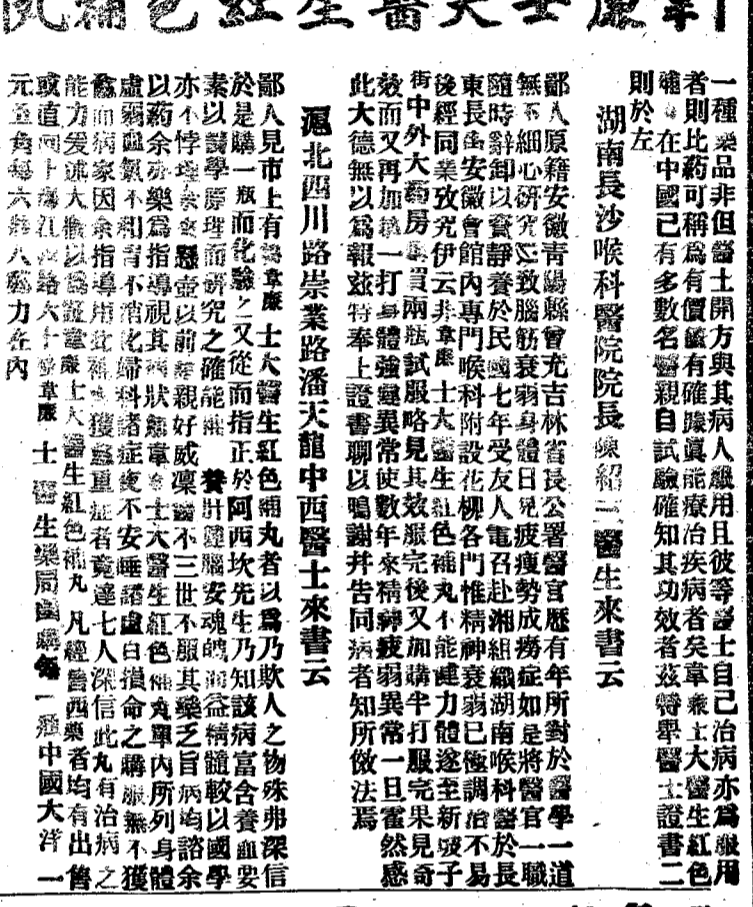 韋廉士大醫生紅色補丸
一種藥品非但醫士開方與其病人服用且彼等醫士自己治病亦爲服用
者則比葯可稱爲有價値有確據眞能療治疾病者矣韋廉士大醫生紅色
補 在中國已有多數名醫親自試驗確知其功效者茲特舉醫士證書二
則於左
湖南長沙喉科醫院院長陳紹三醫生來書云
鄙人原籍安徽靑陽縣曾充吉林省長公署醫官歷有年所對於醫學一道
無不細心研究以致腦筋衰弱身體日見疲瘦勢成癆症如是將醫官一職
隨時辭卸以資靜養於民國七年受友人電召赴湘組織湖南喉科醫於長
東長 安徽會館內專門喉科附設花柳各門惟精神衰弱已極調治不易
後經同業攷究伊云非韋廉士大醫生紅色補丸不能健力體遂至新坡子
街中外大葯房購買兩瓶試服略見其效服完後又加購半打服完果見奇
效而又再加 一打身體強健異常使數年來精神疲弱異常一旦霍然感
此大德無以爲報茲特奉上證書聊以鳴謝幷告同病者知所倣法焉
滬北四川路崇業路潘天龍中西醫士來書云
鄙人見市上有 韋廉士大醫生紅色補丸者以爲乃欺人之物殊弗深信
於是購一瓶而化驗之又從而指正於阿西坎先生乃知該病富含養血要
素以醫學原理而研究之確能 養肝健腦安魂魄 益精髓較以國學
亦不悖 余懸壺以前 親好威凜醫不三世不服其藥乏旨病均諮余
以葯余亦樂爲指導視其病狀 韋廉士大醫生紅色補丸單內所列身體
虛弱血氣不和胃不消化婦科諸症夜不安睡諸虛百損命之購服無不獲
而病家因余指導用此補 獲 重症者竟達七人深信此丸有治病之
能力爰述大 以爲證韋廉士大醫生紅色補丸凡經售西藥者均有出售
或直向上海江西路六十 韋廉士 醫生藥局函購每一瓶中國大洋一
元五角每六瓶八 力在內